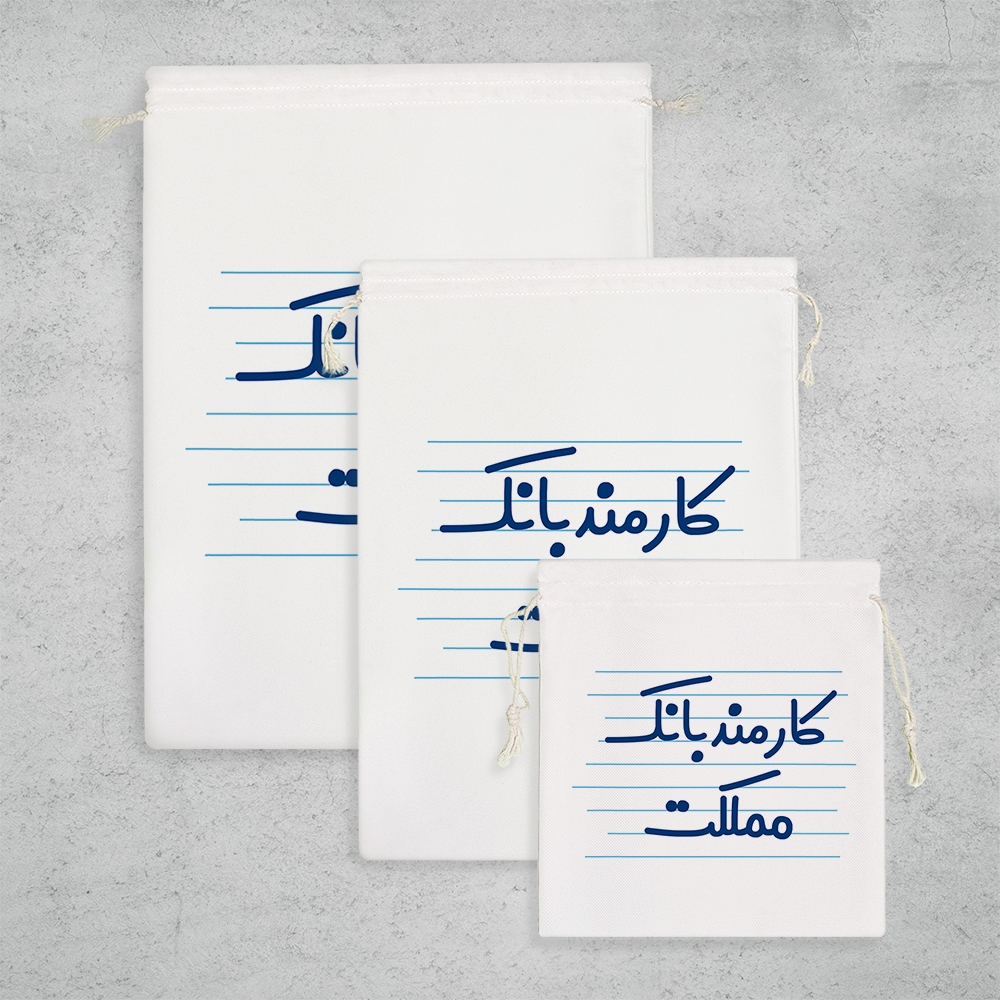 کارمند بانک
کارمند بانک
مملکت